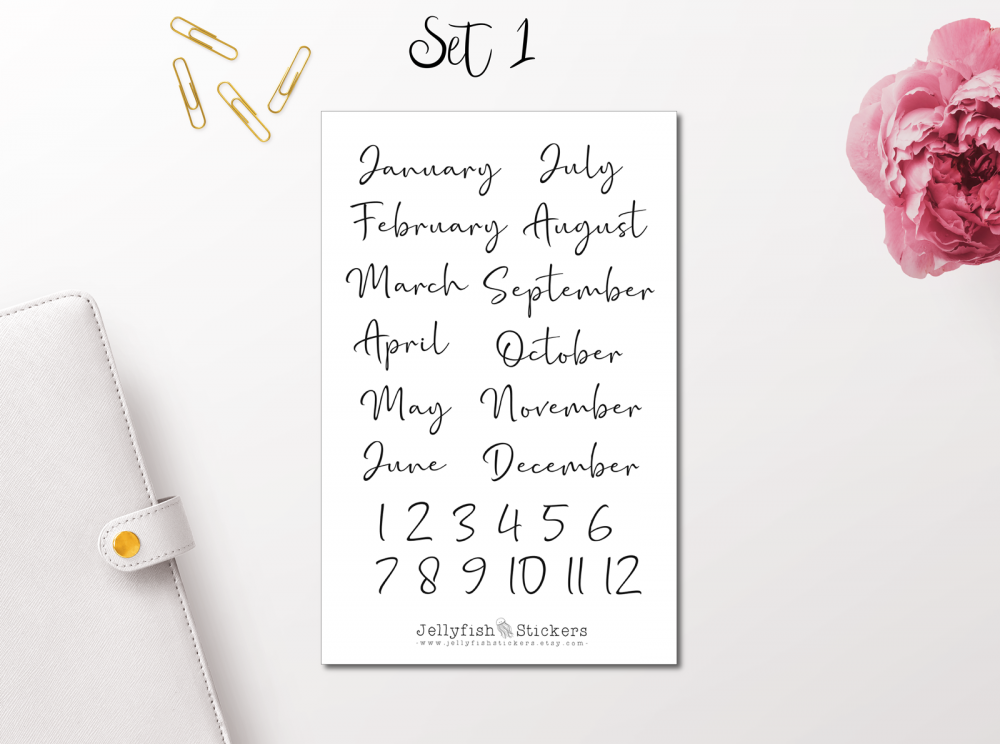 Set 1
January July
February August
March September
April October
May November
June December
1 2 3 4 5 6
7 8 9 10 11 12
Jellyfish Stickers
-www.jellyfishstickers.etsy.com-